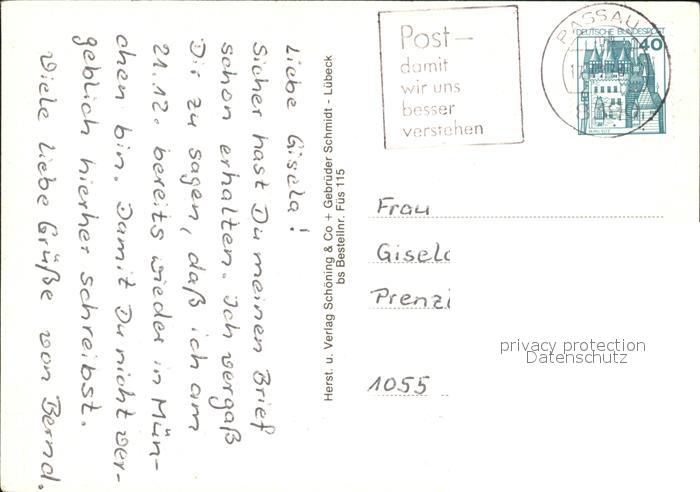 Liebe Gisela!
Sicher hast Du meinen Brief
schon erhalten. Ich vergaß
Dir zu sagen, daß ich am
21.12. bereits wieder in Mün-
chen bin. Damit Du nicht ver-
geblich hierher schreibst.
Viele liebe Grüße von Bernd.
Herst. u. Verlag Schöning & Co + Gebrüder Schmidt - Lübeck
bs Bestellnr. Füs 115
Post-
damit
wir uns
besser
verstehen
PASSAU
DEUTSCHE BUNDESPOST
40
Frau
Gisela
Prenzl
privacy protection
Datenschutz
1055